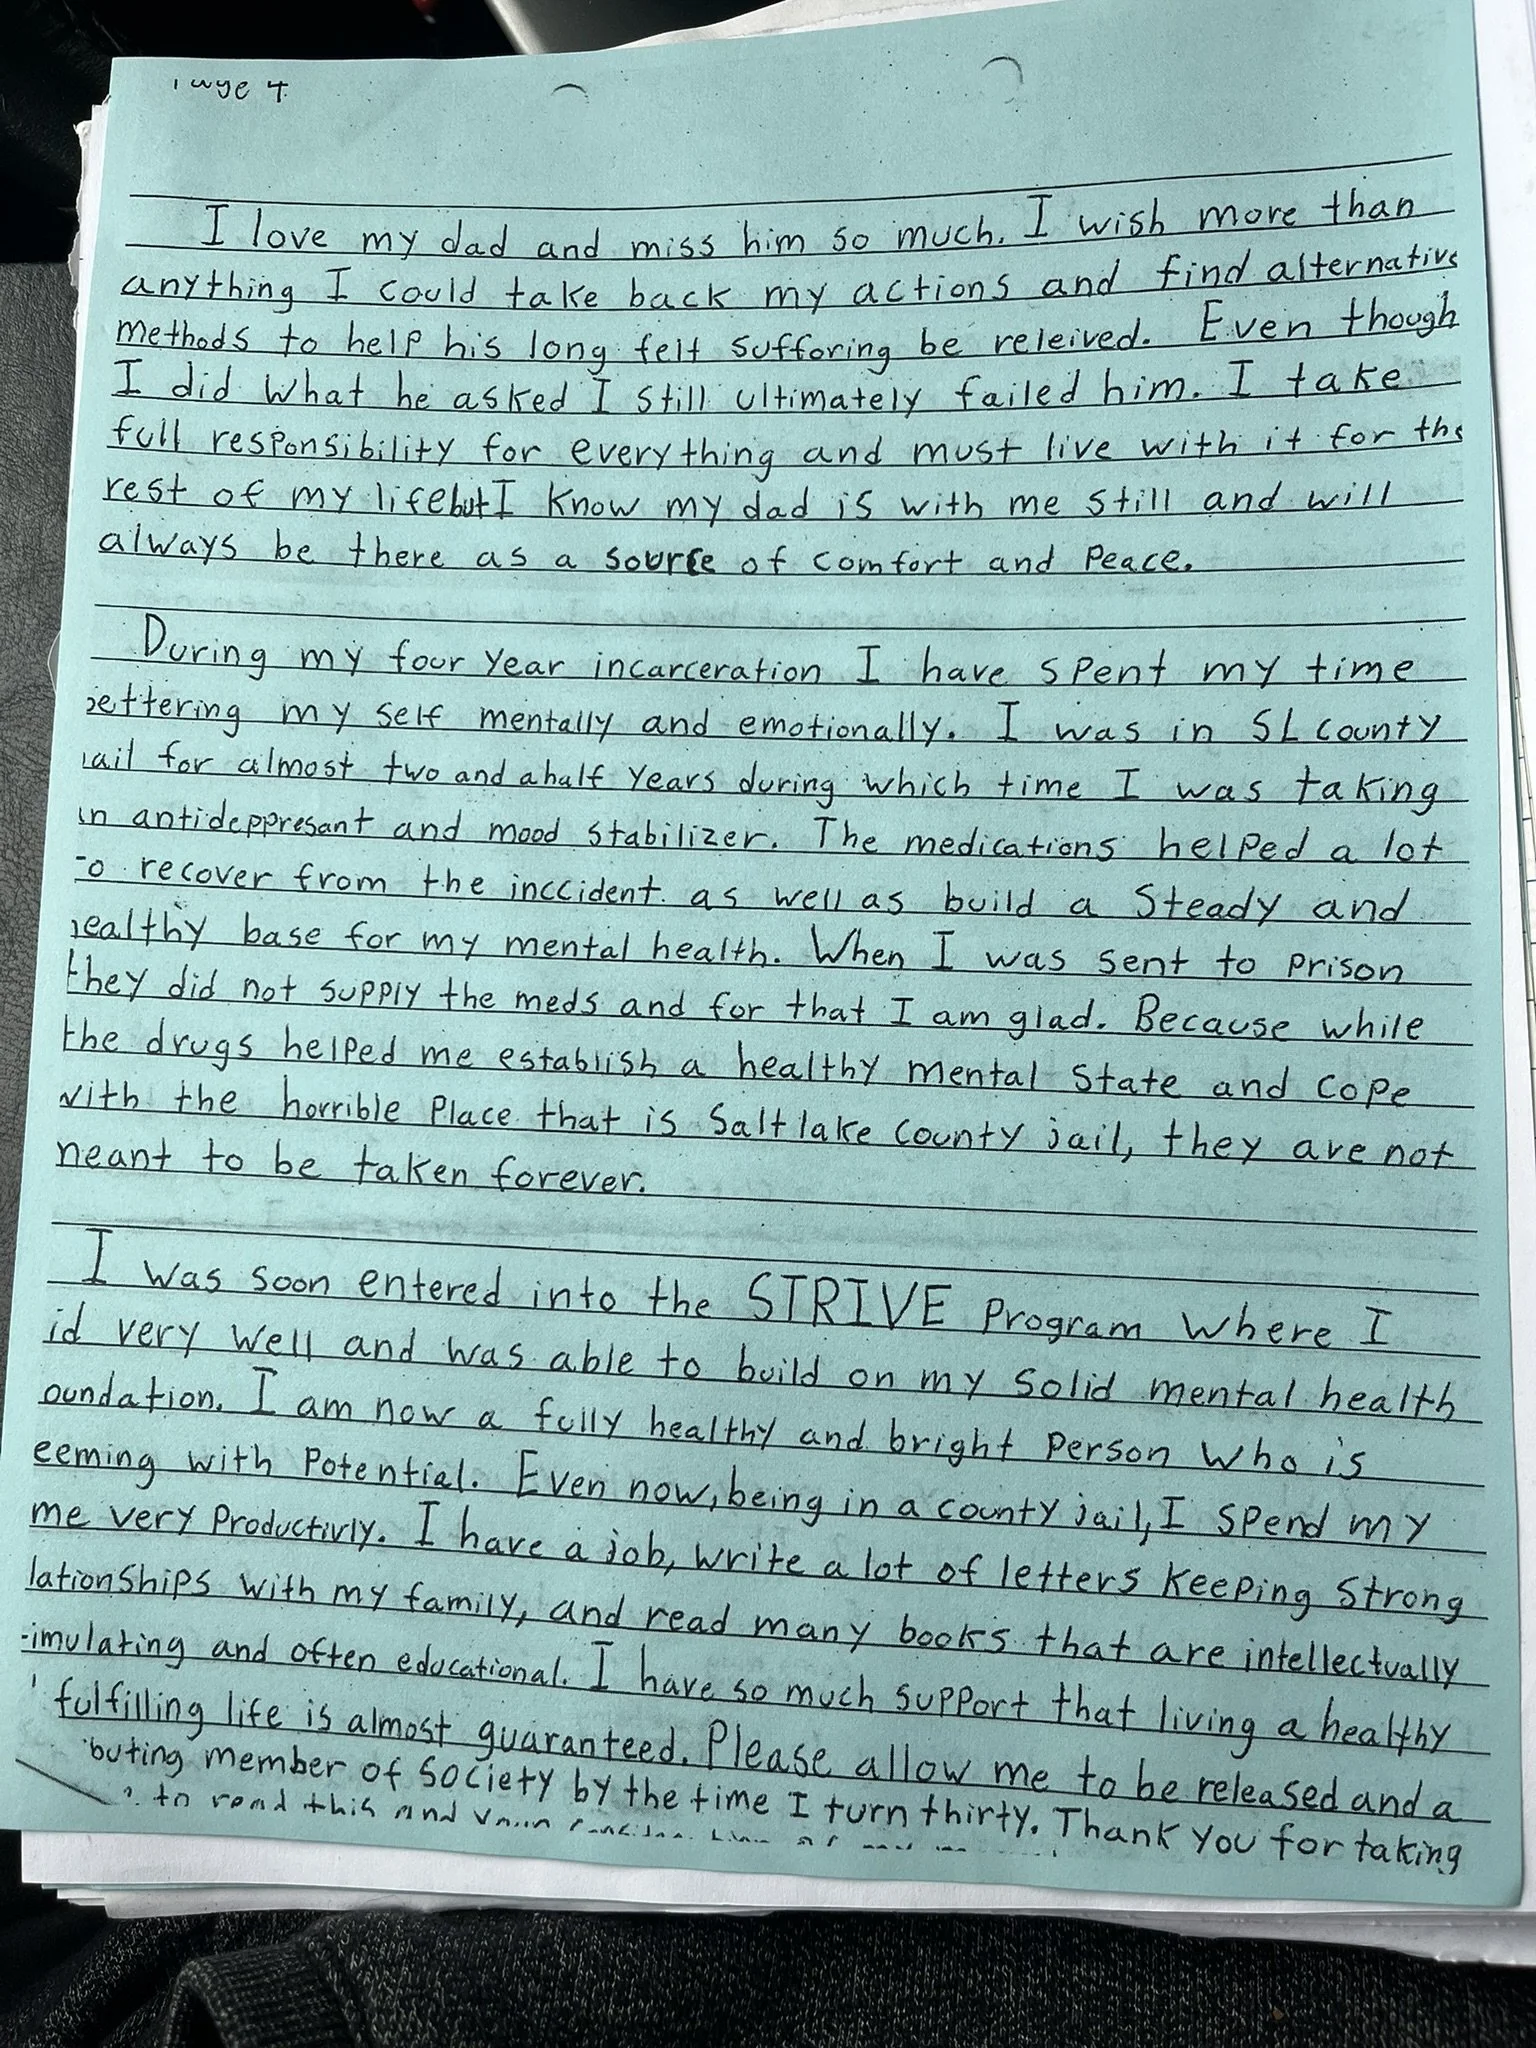 4
I love my dad and miss him so much. I wish more than
anything I could take back my actions and find alternative
methods to help his long felt sufforing be releived. Even though
I did what he asked I still ultimately failed him. I take
full responsibility for everything and must live with it for the
rest of my life but I know my dad is with me still and will
always be there as a source of comfort and Peace.
During my four year incarceration I have spent my time
bettering my self mentally and emotionally. I was in SL county
jail for almost two and a half years during which time I was taking
an antideppresant and mood stabilizer. The medications helped a lot
to recover from the inccident as well as build a steady and
healthy base for my mental health. When I was sent to prison
they did not supply the meds and for that I am glad. Because while
the drugs helped me establish a healthy mental state and cope
with the horrible place that is Salt lake county jail, they are not
meant to be taken forever.
I was soon entered into the STRIVE program where I
id very well and was able to build on my solid mental health
oundation. I am now a fully healthy and bright person who is
eeming with potential. Even now, being in a county jail, I spend my
me very productivly. I have a job, write a lot of letters keeping strong
lationships with my family, and read many books that are intellectually
imulating and often educational. I have so much support that living a healthy
fulfilling life is almost guaranteed. Please allow me to be released and a
buting member of society by the time I turn thirty. Thank you for taking
to read this and your